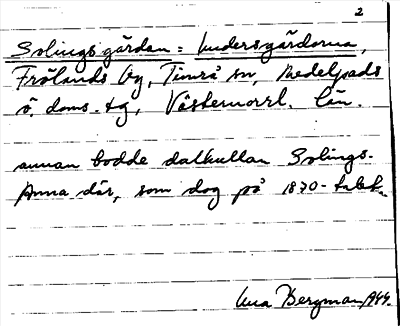 2
Solingsgården = Lundersgårdarna,
Frölands by, Timrå sn, Medelpads
ö. doms. tg, Västernorrl. län.
annan bodde dalkullan Solings-
Anna där, som dog på 1870-talet.
Bergman 1944.